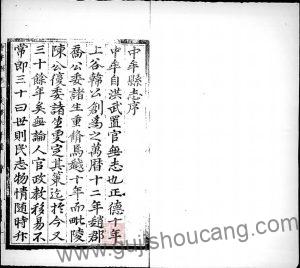 中牟縣志序
中牟自洪武置官無志也正德十年
上谷韓公創爲之萬曆十二年趙郡
喬公委諸生重脩焉越十年而毗陵
陳公復委諸生更定其藁迄於今又
三十餘年矣無論人官政教移易不
常即三十曰世則民志物情隨時升
gujishoucang.com